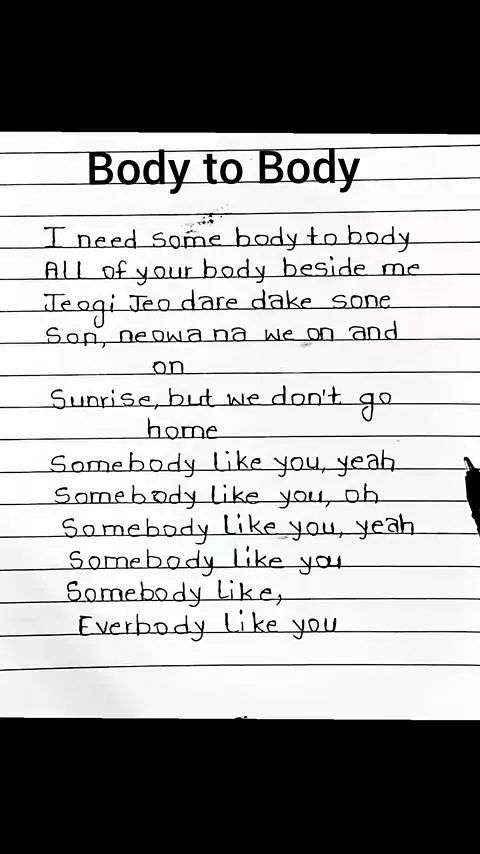 Body to Body
I need some body to body
All of your body beside me
Jeogi Jeo dare dake sone
Son, neowa na we on and
on
Sunrise, but we don't go
home
Somebody like you, yeah
Somebody like you, oh
Somebody like you, yeah
Somebody like you
Somebody like,
Everbody like you